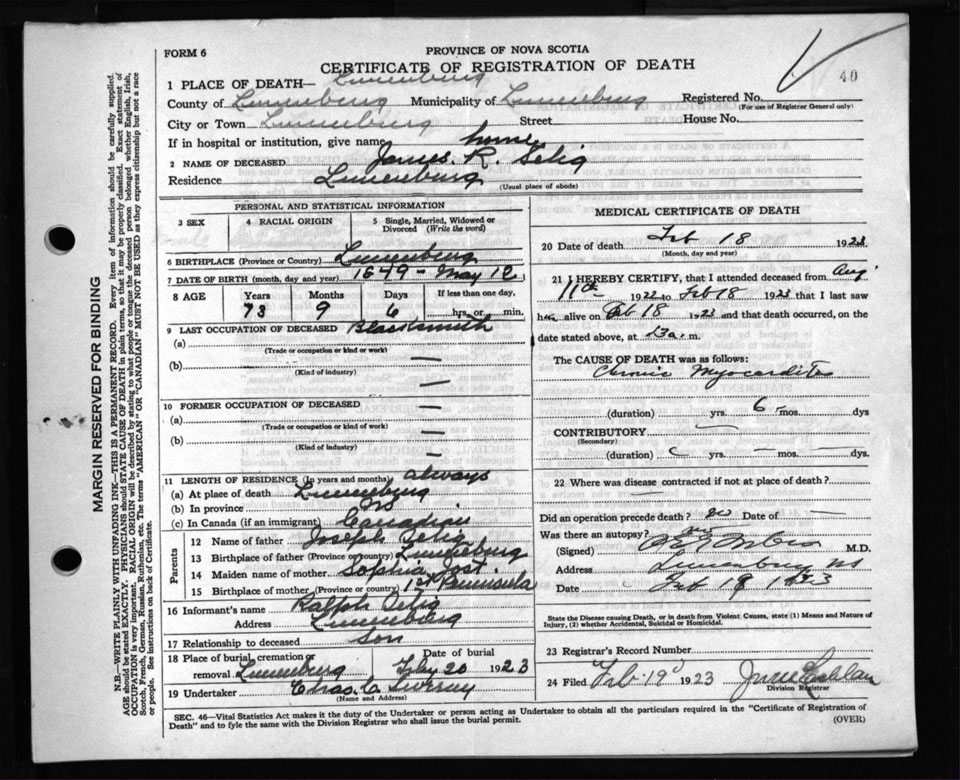 FORM 6
PROVINCE OF NOVA SCOTIA
CERTIFICATE OF REGISTRATION OF DEATH
40
1 PLACE OF DEATH— Lunenburg
County of Lunenburg Municipality of Lunenburg Registered No.
(For use of Registrar General only)
City or Town Lunenburg Street House No.
If in hospital or institution, give name home
2 NAME OF DECEASED James. R. Selig
Residence Lunenburg
(Usual place of abode)
PERSONAL AND STATISTICAL INFORMATION
3 SEX 4 RACIAL ORIGIN 5 Single, Married, Widowed or Divorced (Write the word)
6 BIRTHPLACE (Province or Country) Lunenburg
7 DATE OF BIRTH (month, day and year) 1849 - May 12
8 AGE Years Months Days If less than one day,
73 9 6 hrs. or min.
9 LAST OCCUPATION OF DECEASED Blacksmith
(a)
(Trade or occupation or kind or work)
(b) —
(Kind of industry)
—
10 FORMER OCCUPATION OF DECEASED —
(a)
(Trade or occupation or kind of work)
(b) —
(Kind of industry)
—
11 LENGTH OF RESIDENCE (In years and months) always
(a) At place of death Lunenburg
(b) In province NS
(c) In Canada (if an immigrant) Canadian
Parents
12 Name of father Joseph Selig
13 Birthplace of father (Province or country) Lunenburg
14 Maiden name of mother Sophia Jost.
15 Birthplace of mother (Province or country) 1st Peninsula
16 Informant's name Ralph Selig
Address Lunenburg
17 Relationship to deceased Son
18 Place of burial, cremation or removal Lunenburg Date of burial Feby 20 1923
19 Undertaker Chas. C
(Name and Address)
MEDICAL CERTIFICATE OF DEATH
20 Date of death Feb 18 1923
(Month, day and year)
21 I HEREBY CERTIFY, that I attended deceased from Aug
11th 1922 to Feb 18 1923 that I last saw
him alive on Feb 18 1923 and that death occurred, on
date stated above, at a. m.
The CAUSE OF DEATH was as follows:
Chronic Myocarditis
(duration) — yrs. 6 mos. dys
CONTRIBUTORY
(Secondary)
(duration) yrs. — mos. — dys.
22 Where was disease contracted if not at place of death?
—
Did an operation precede death? no Date of —
Was there an autopsy? no
(Signed) M.D.
Address Lunenburg NS
Date Feb 19 1923
State the Disease Causing Death, or in death from Violent Causes, state (1) Means and Nature of Injury, (2) whether Accidental, Suicidal or Homicidal.
23 Registrar's Record Number
24 Filed Feb 19 1923
Division Registrar
SEC. 46—Vital Statistics Act makes it the duty of the Undertaker or person acting as Undertaker to obtain all the particulars required in the "Certificate of Registration of
Death" and to fyle the same with the Division Registrar who shall issue the burial permit.
(OVER)
MARGIN RESERVED FOR BINDING
N.B.—WRITE PLAINLY WITH UNFADING INK—THIS IS A PERMANENT RECORD. Every item of information should be carefully supplied.
AGE should be stated EXACTLY. PHYSICIANS should STATE CAUSE OF DEATH in plain terms, so that it may be properly classified. Exact statement of
OCCUPATION is very important. RACIAL ORIGIN will be described by stating to what people or tongue the deceased person belonged whether English, Irish,
Scotch, French, German, Russian, Ruthenian, etc. The terms "AMERICAN" OR "CANADIAN" MUST NOT BE USED as they express citizenship but not a race
or people. See instructions on back of Certificate.